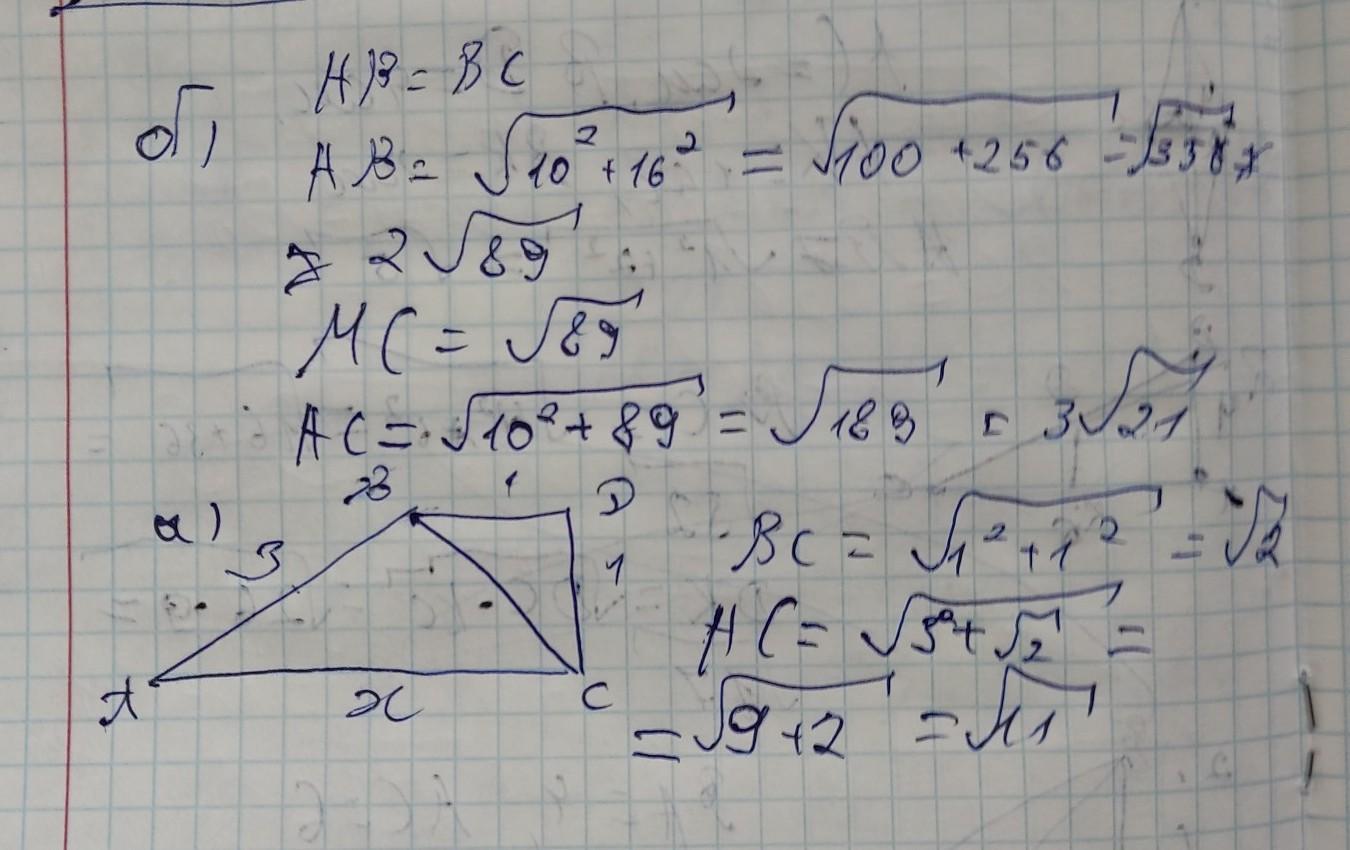 б)
AB = BC
AB = √(10² + 16²) = √(100 + 256) = √356 =
= 2√89
MC = √89
AC = √(10² + 89) = √189 = 3√21
а)
B 1 D
3
1
A x C
BC = √(1² + 1²) = √2
AC = √(3² + √2) =
= √(9 + 2) = √11